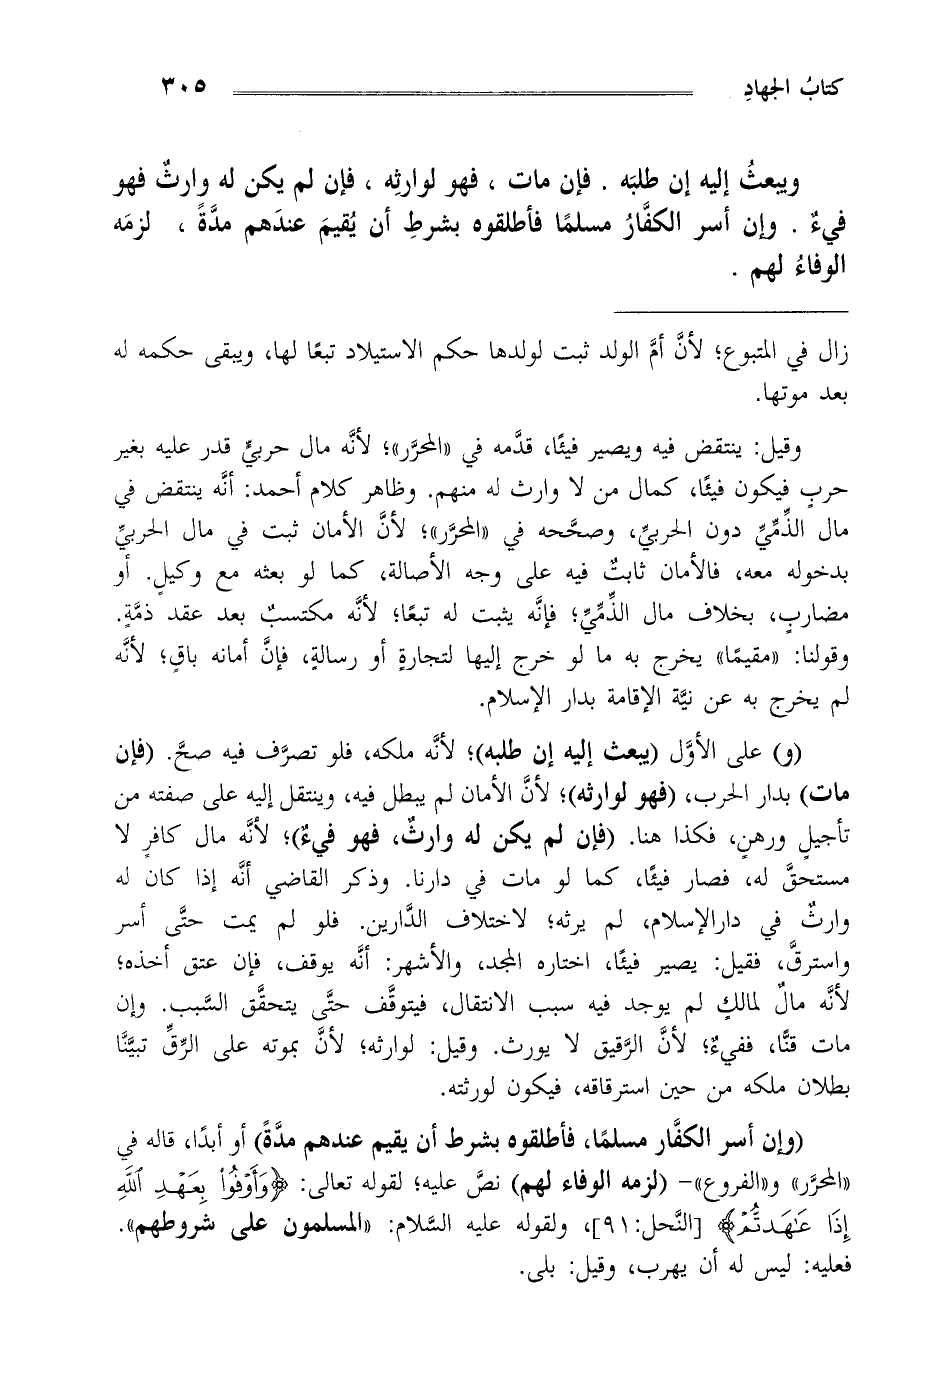 كتابُ الجهادِ ٣٠٥
ويبعثُ إليه إن طلبَه . فإن مات ، فهو لوارثِه ، فإن لم يكن له وارثٌ فهو
فيءٌ . وإن أسر الكفَّارُ مسلمًا فأطلقوه بشرطِ أن يُقيمَ عندَهم مدَّةً ، لزمَه
الوفاءُ لهم .
زال في المتبوع؛ لأنَّ أمَّ الولد ثبت لولدها حكم الاستيلاد تبعًا لها، ويبقى حكمه له
بعد موتها.
وقيل: ينتقض فيه ويصير فيئًا، قدَّمه في «المحرَّر»؛ لأنَّه مال حربيٍّ قدر عليه بغير
حربٍ فيكون فيئًا، كمال من لا وارث له منهم. وظاهر كلام أحمد: أنَّه ينتقض في
مال الذِّمِّيِّ دون الحربيِّ، وصحَّحه في «المحرَّر»؛ لأنَّ الأمان ثبت في مال الحربيِّ
بدخوله معه، فالأمان ثابتٌ فيه على وجه الأصالة، كما لو بعثه مع وكيلٍ. أو
مضاربٍ، بخلاف مال الذِّمِّيِّ؛ فإنَّه يثبت له تبعًا؛ لأنَّه مكتسبٌ بعد عقد ذمَّةٍ.
وقولنا: «مقيمًا» يخرج به ما لو خرج إليها لتجارةٍ أو رسالةٍ، فإنَّ أمانه باقٍ؛ لأنَّه
لم يخرج به عن نيَّة الإقامة بدار الإسلام.
(و) على الأوَّل (يبعث إليه إن طلبه)؛ لأنَّه ملكه، فلو تصرَّف فيه صحَّ. (فإن
مات) بدار الحرب، (فهو لوارثه)؛ لأنَّ الأمان لم يبطل فيه، وينتقل إليه على صفته من
تأجيلٍ ورهنٍ، فكذا هنا. (فإن لم يكن له وارثٌ، فهو فيءٌ)؛ لأنَّه مال كافرٍ لا
مستحقَّ له، فصار فيئًا، كما لو مات في دارنا. وذكر القاضي أنَّه إذا كان له
وارثٌ في دارالإسلام، لم يرثه؛ لاختلاف الدَّارين. فلو لم يمت حتَّى أسر
واسترقَّ، فقيل: يصير فيئًا، اختاره المجد، والأشهر: أنَّه يوقف، فإن عتق أخذه؛
لأنَّه مالٌ لمالكٍ لم يوجد فيه سبب الانتقال، فيتوقَّف حتَّى يتحقَّق السَّبب. وإن
مات قنًّا، ففيءٌ؛ لأنَّ الرَّقيق لا يورث. وقيل: لوارثه؛ لأنَّ بموته على الرِّقِّ تبيَّنَّا
بطلان ملكه من حين استرقاقه، فيكون لورثته.
(وإن أسر الكفَّار مسلمًا، فأطلقوه بشرط أن يقيم عندهم مدَّةً) أو أبدًا، قاله في
«المحرَّر» و«الفروع»- (لزمه الوفاء لهم) نصَّ عليه؛ لقوله تعالى: ﴿وَأَوْفُوا۟ بِعَهْدِ ٱللَّهِ
إِذَا عَـٰهَدتُّمْ﴾ [النَّحل: ٩١]، ولقوله عليه السَّلام: «المسلمون على شروطهم».
فعليه: ليس له أن يهرب، وقيل: بلى.